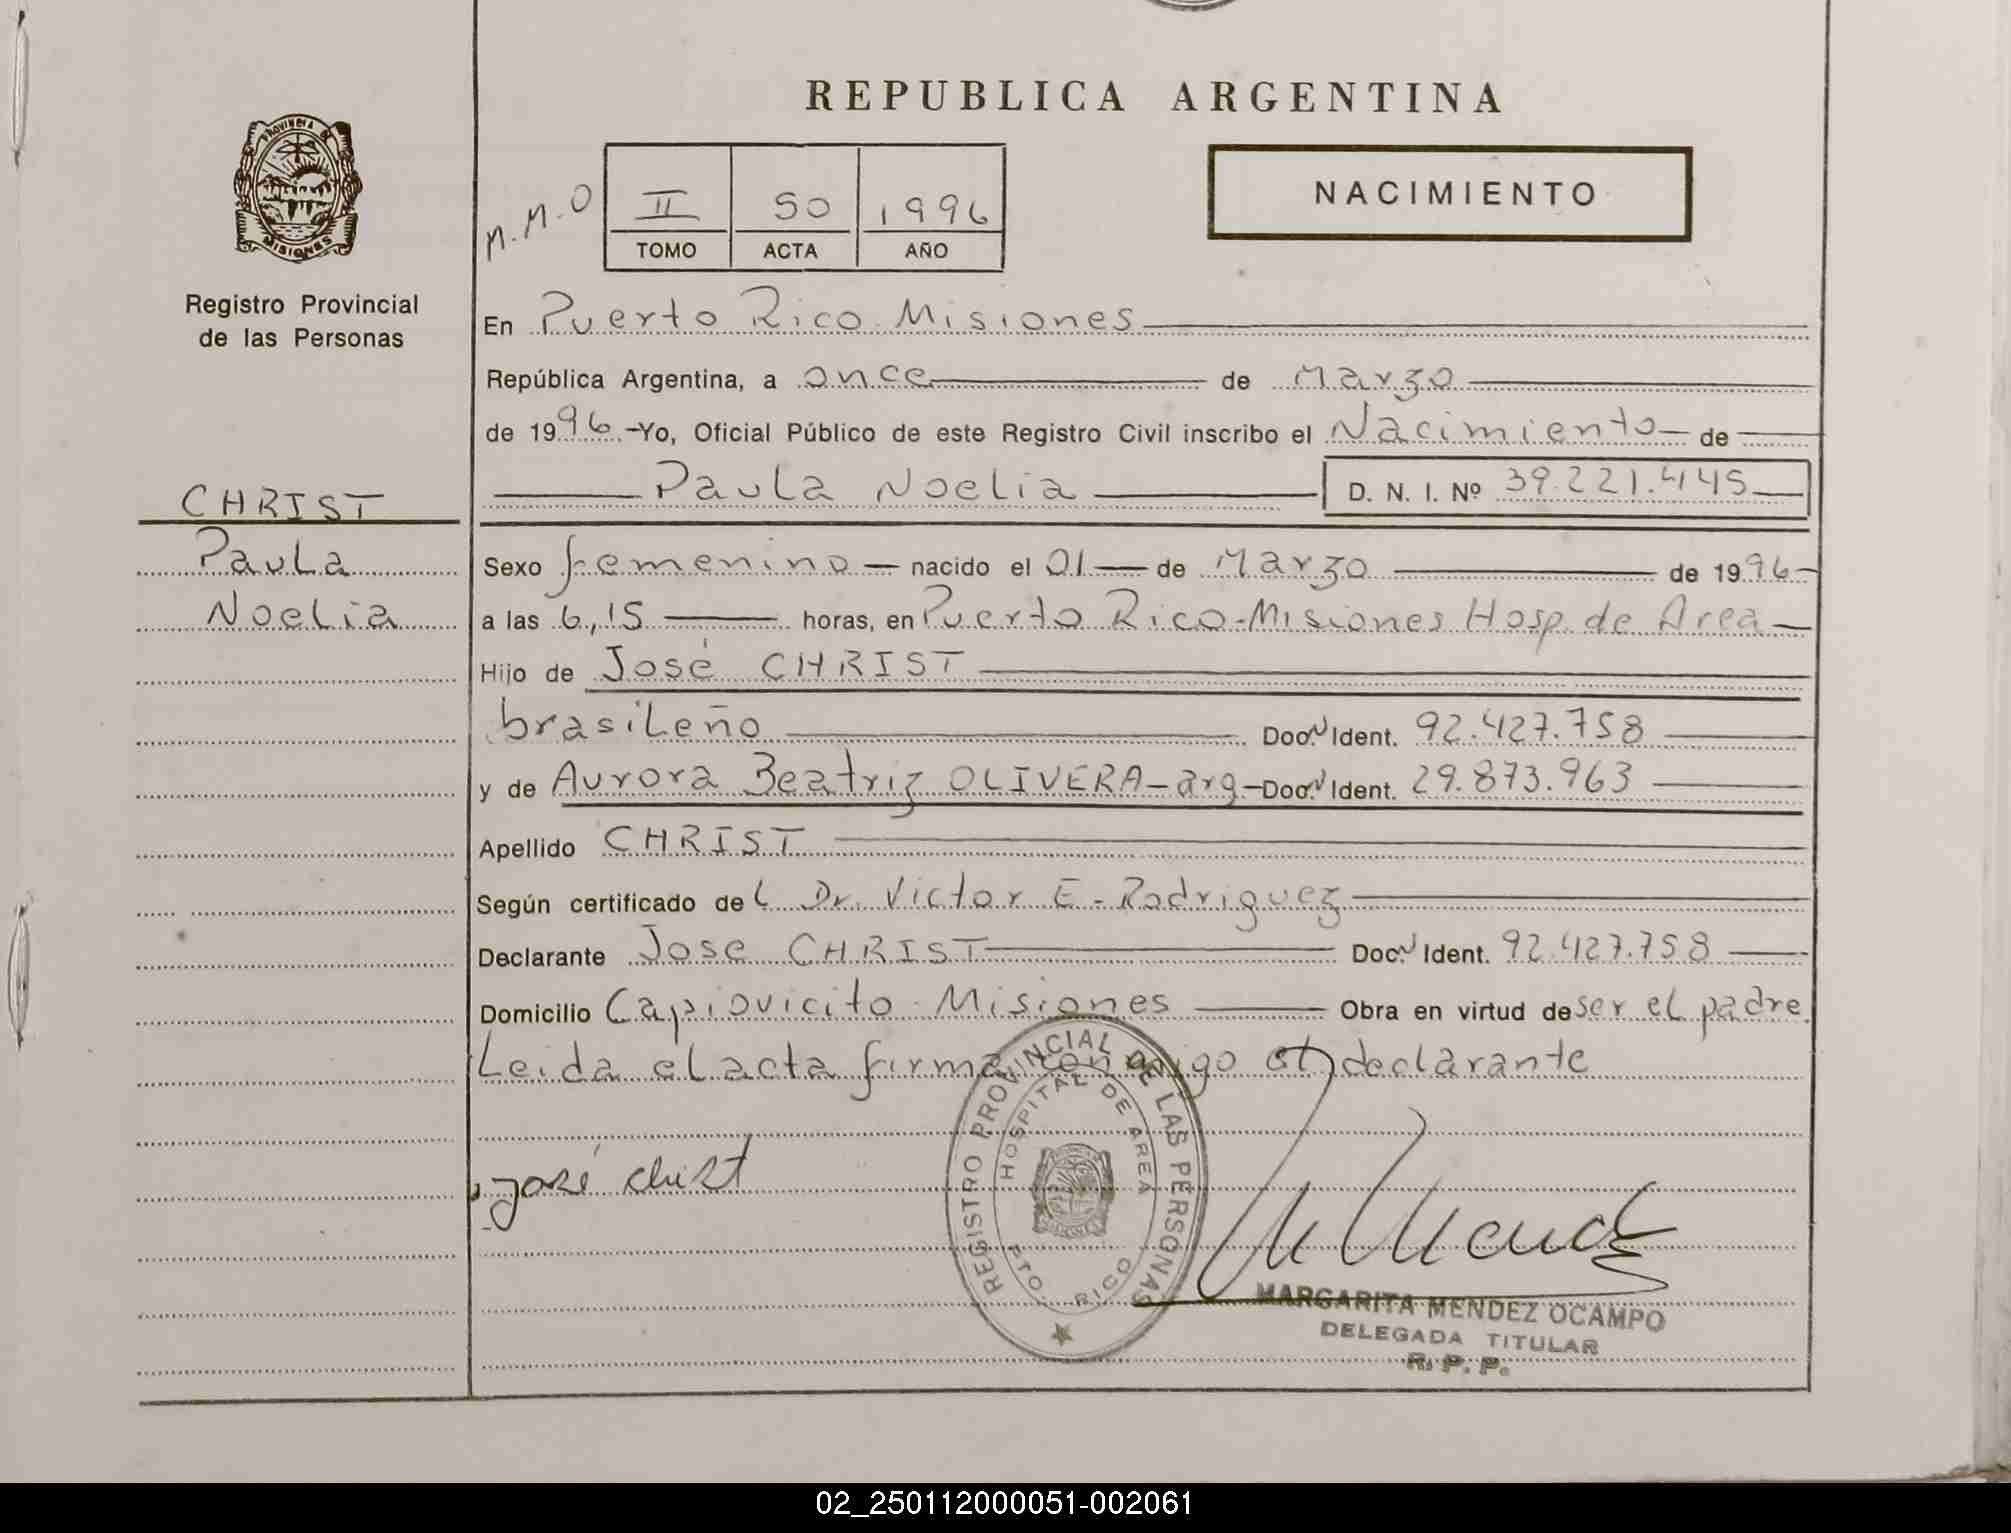 REPUBLICA ARGENTINA
PROVINCIA DE
MISIONES
Registro Provincial
de las Personas
M.M.O
II 50 1996
TOMO ACTA AÑO
NACIMIENTO
En Puerto Rico Misiones
República Argentina, a once de Marzo
de 1996.-Yo, Oficial Público de este Registro Civil inscribo el Nacimiento de
Paula Noelia D. N. I. Nº 39.221.445
CHRIST
Paula
Noelia
Sexo femenino nacido el 01 de Marzo de 1996
a las 6,15 horas, en Puerto Rico-Misiones Hosp. de Area
Hijo de José CHRIST
brasileño Doc. Ident. 92.427.758
y de Aurora Beatriz OLIVERA-arg-Doc. Ident. 29.873.963
Apellido CHRIST
Según certificado del Dr. Victor E. Rodriguez
Declarante Jose CHRIST Doc. Ident. 92.427.758
Domicilio Capiovicito Misiones Obra en virtud de ser el padre.
Leida el acta firma conmigo el declarante
REGISTRO PROVINCIAL DE LAS PERSONAS
HOSPITAL DE AREA
PTO. RICO
josé christ
MARGARITA MENDEZ OCAMPO
DELEGADA TITULAR
R. P. P.
02_250112000051-002061